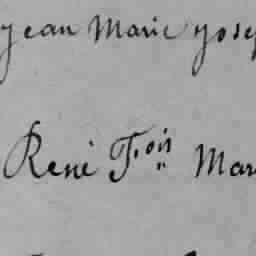 Jean Marie Josep
René F.ois Mar